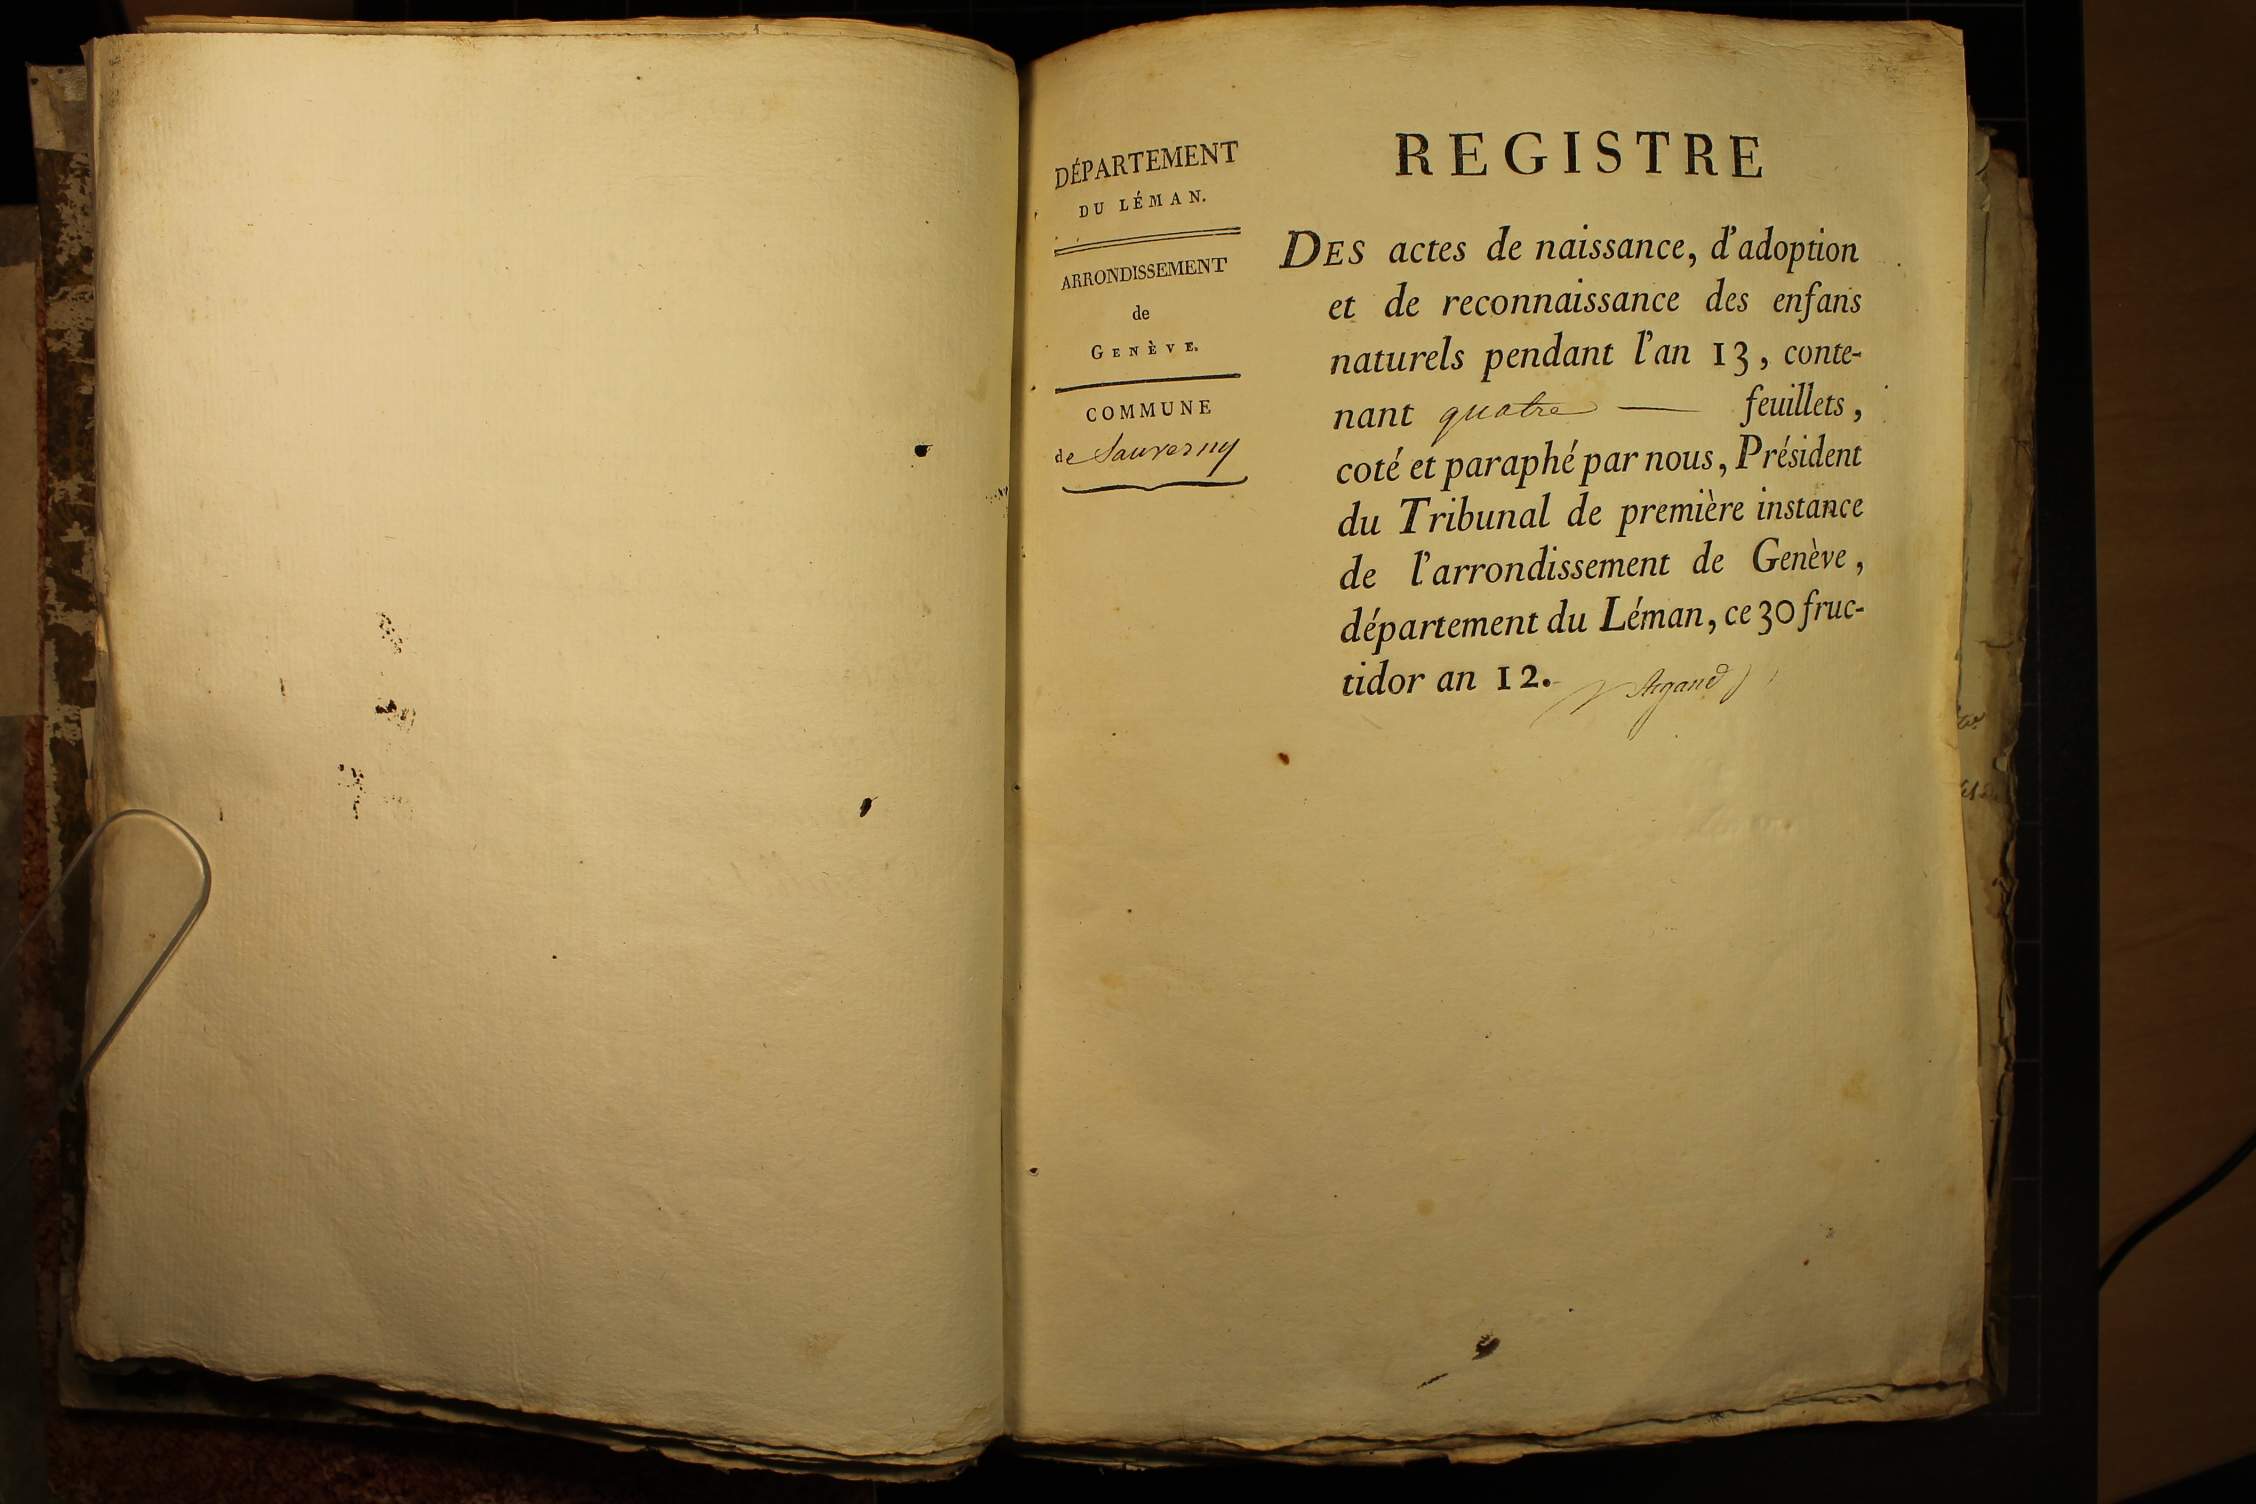 DÉPARTEMENT
DU LÉMAN.
ARRONDISSEMENT
de
GENÈVE.
COMMUNE
de Sauverny
REGISTRE
DES actes de naissance, d'adoption
et de reconnaissance des enfans
naturels pendant l'an 13, conte-
nant quatre — feuillets,
coté et paraphé par nous, Président
du Tribunal de première instance
de l'arrondissement de Genève,
département du Léman, ce 30 fruc-
tidor an 12. Argand